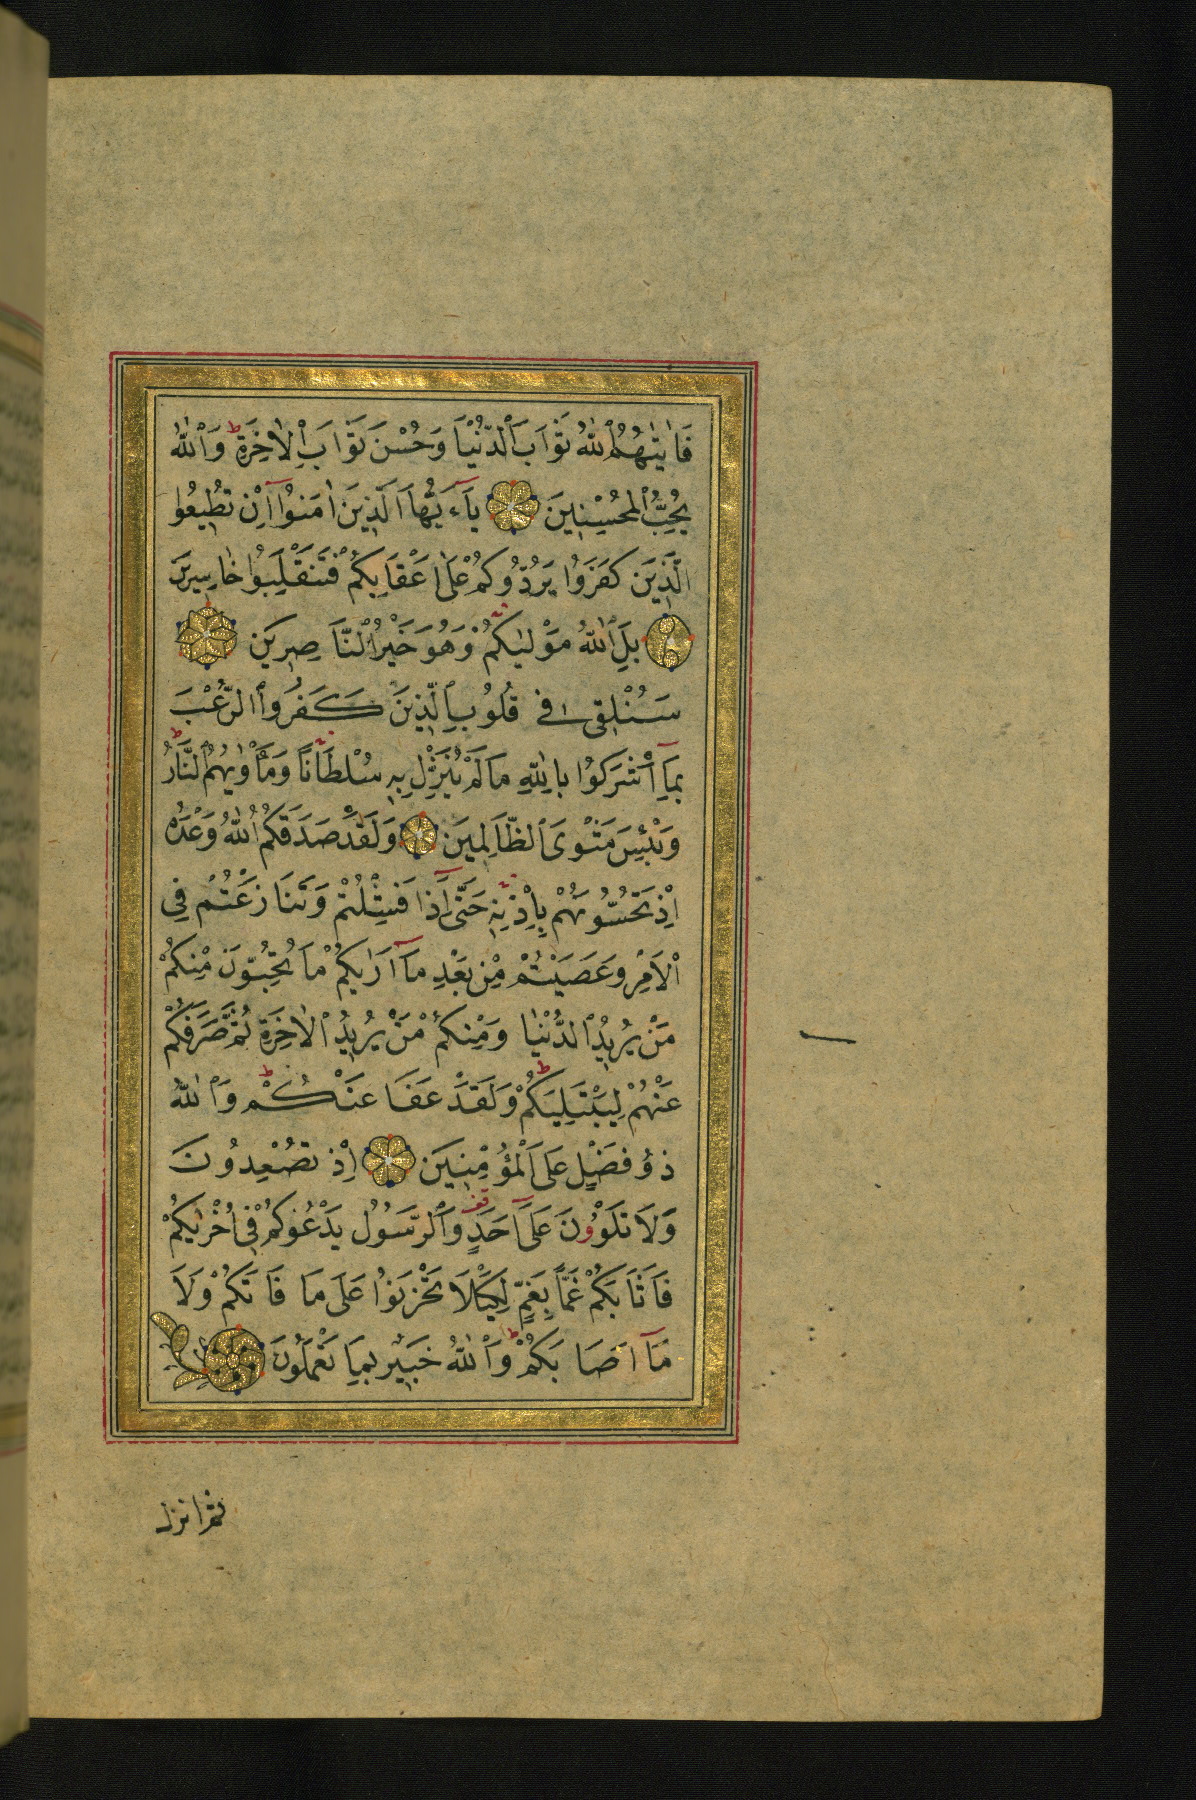 فَاٰتٰيهُمُ ٱللّٰهُ ثَوَابَ ٱلدُّنْيَا وَحُسْنَ ثَوَابِ ٱلْاٰخِرَةِ ط وَٱللّٰهُ
يُحِبُّ ٱلْمُحْسِنِينَ يَآءَيُّهَا ٱلَّذِينَ اٰمَنُوٓا اِنْ تُطِيعُوا
ٱلَّذِينَ كَفَرُوا يَرُدُّوكُمْ عَلٰٓى اَعْقَابِكُمْ فَتَنْقَلِبُوا خَاسِرِينَ
بَلِ ٱللّٰهُ مَوْلٰيكُمْ وَهُوَ خَيْرُ ٱلنَّاصِرِينَ
سَنُلْقِى فِى قُلُوبِ ٱلَّذِينَ كَفَرُوا ٱلرُّعْبَ
بِمَآ اَشْرَكُوا بِاللّٰهِ مَا لَمْ يُنَزِّلْ بِهِ سُلْطَانًا وَمَأْوٰيهُمُ ٱلنَّارُ ط
وَبِئْسَ مَثْوَى ٱلظَّالِمِينَ وَلَقَدْ صَدَقَكُمُ ٱللّٰهُ وَعْدَهُ
اِذْ تَحُسُّونَهُمْ بِاِذْنِهِ حَتّٰىٓ اِذَا فَشِلْتُمْ وَتَنَازَعْتُمْ فِى
ٱلْاَمْرِ وَعَصَيْتُمْ مِنْ بَعْدِ مَآ اَرٰيكُمْ مَا تُحِبُّونَ مِنْكُمْ
مَنْ يُرِيدُ ٱلدُّنْيَا وَمِنْكُمْ مَنْ يُرِيدُ ٱلْاٰخِرَةَ ثُمَّ صَرَفَكُمْ
عَنْهُمْ لِيَبْتَلِيَكُمْ ط وَلَقَدْ عَفَا عَنْكُمْ ط وَٱللّٰهُ
ذُو فَضْلٍ عَلَى ٱلْمُؤْمِنِينَ اِذْ تُصْعِدُونَ
وَلَا تَلْوُونَ عَلٰٓى اَحَدٍ وَٱلرَّسُولُ يَدْعُوكُمْ فِى اُخْرٰيكُمْ
فَاَثَابَكُمْ غَمًّا بِغَمٍّ لِكَيْلَا تَحْزَنُوا عَلٰى مَا فَاتَكُمْ وَلَا
مَآ اَصَابَكُمْ ط وَٱللّٰهُ خَبِيرٌ بِمَا تَعْمَلُونَ
ثم انزل